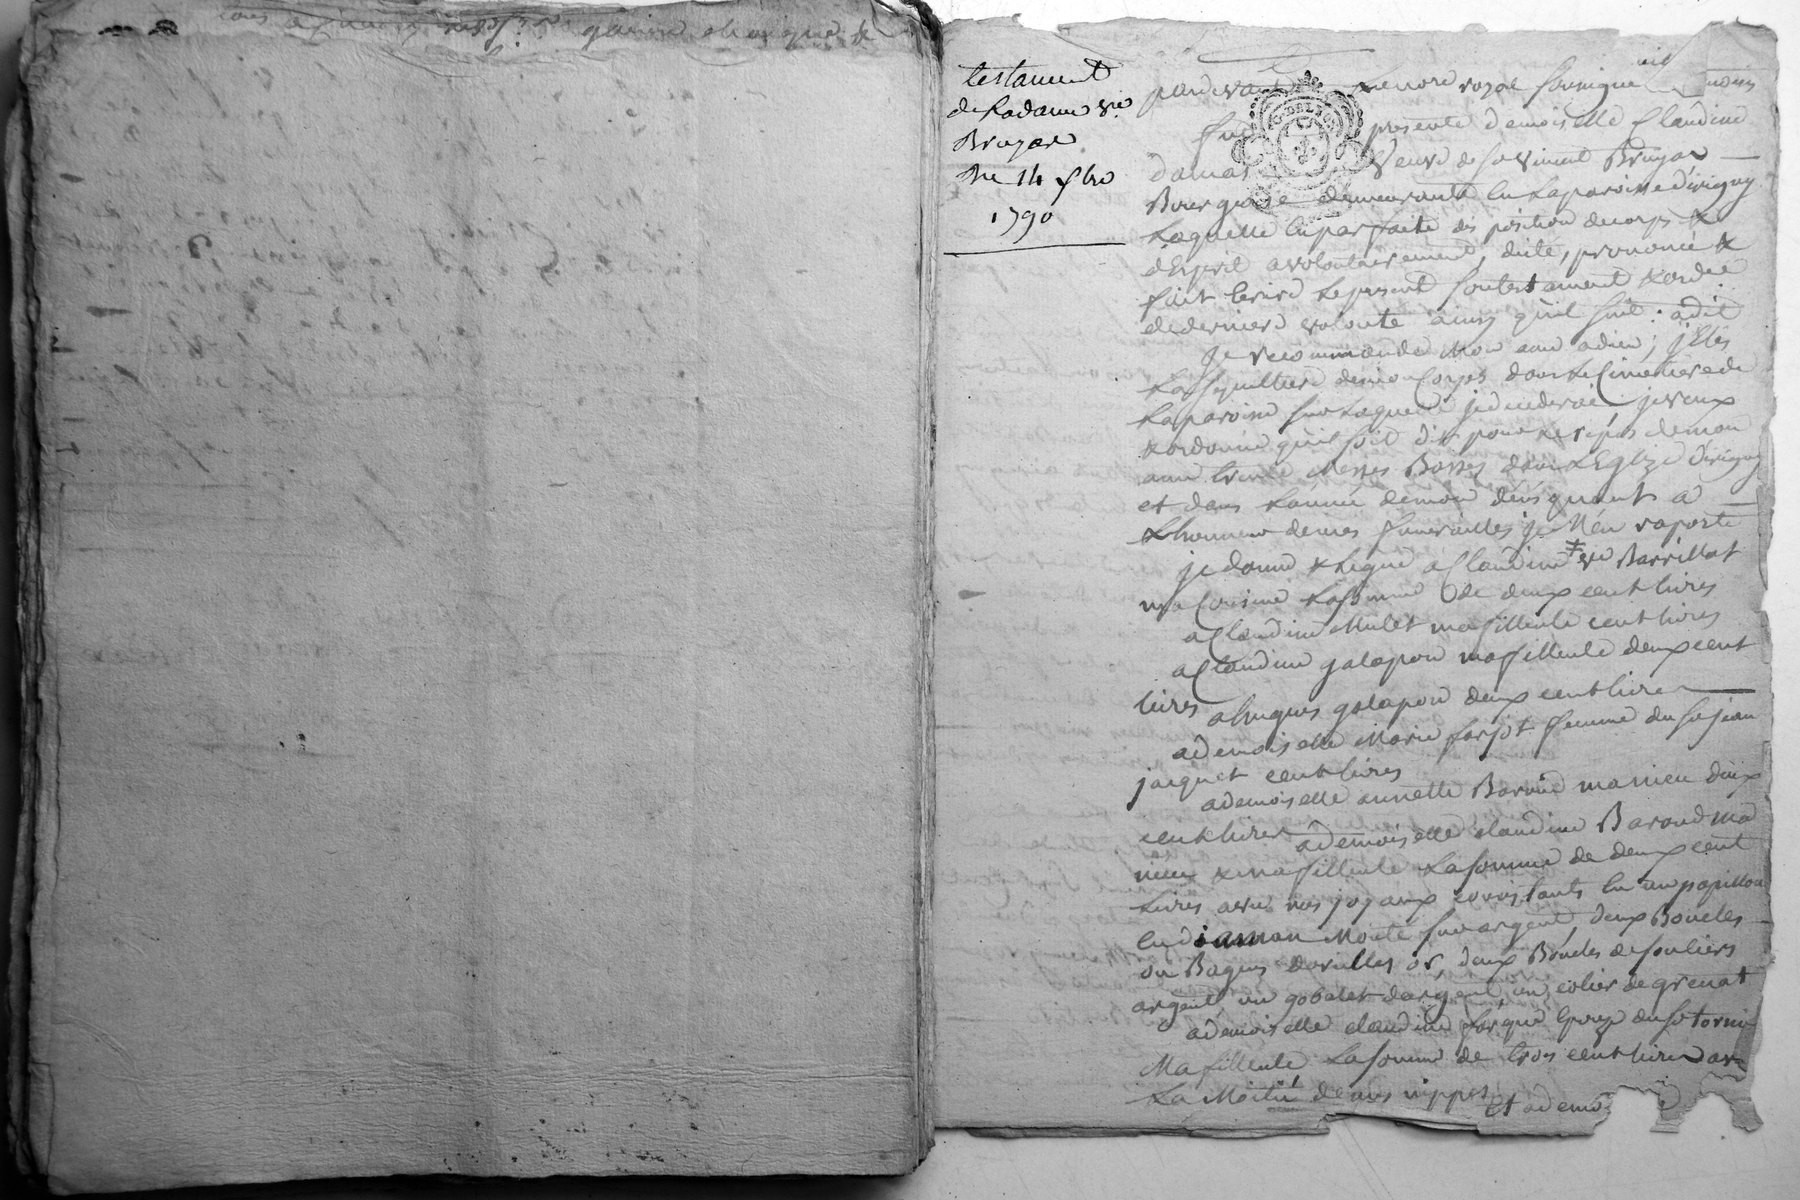 testament
de Madame ve.
Bruyas
Du 14 fbre
1790
pardevant Le notre royal soussigné
fut presente demoiselle Claudine
damas veuve de sr vincent Bruyas
Bourgeoise demeurante en la paroisse d'irigny
Laquelle en parfaite disposition de corps &
d'Esprit a volontairement dicté, prononcé &
fait Ecrire Le present son testament & ord.ce
de derniere volonté ainsy qu'il suit : a dit
je recommande Mon ame a dieu ; j'Elis
La sepulture de mon Corps dans Le Cimetiere de
La paroisse sur Laquelle je decederai je veux
& ordonne qu'il soit dit pour Le repos de mon
ame trente Messes Basses dans L'Eglize d'irigny
et dans L'année de mon deces quant a
L'honneur de mes funerailles je M'en raporte
je donne & Legue a Claudine ve Barrillot
ma Cousine La somme de deux cent livres
a Claudine Mulet ma filleule cent livres
a Claudine galapon ma filleule deux cent
livres a hugues galapon deux cent livres
a demoiselle Marie farjot femme du sr jean
jacquet cent livres
a demoiselle annette Baroud ma niece deux
cent livres a demoiselle claudine Baroud ma
niece & ma filleule La somme de deux cent
Livres avec mes joyaux consistants En un papillon
En diaman Monté sur argent, deux Boucles
ou Bagues d'oreilles or, deux Boucles de souliers
argent, un gobelet d'argent, un colier de grenat
a demoiselle claudine farque Epouze du sr tornier
Ma filleule La somme de trois cent livres avec
La Moitié de mes nippes et a demo